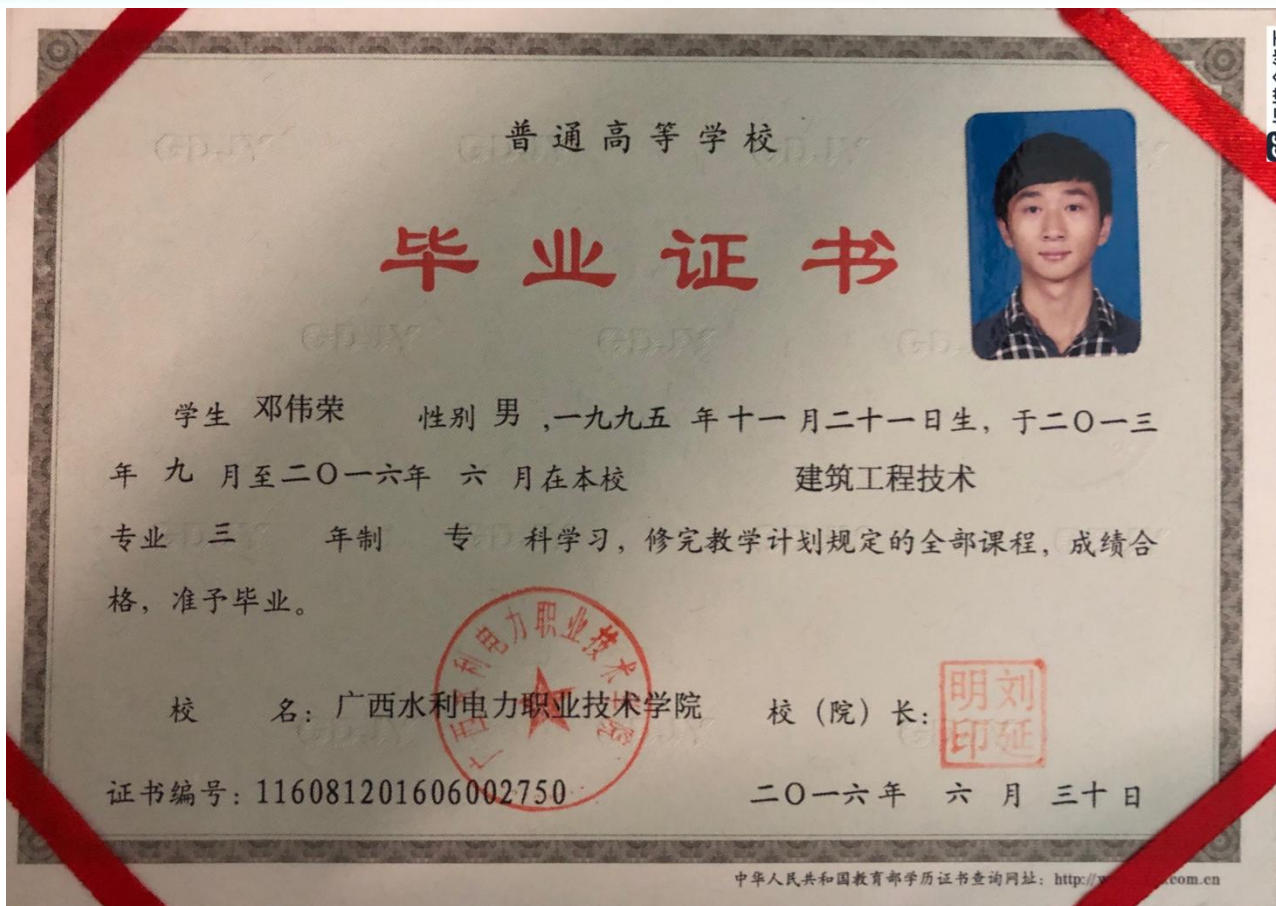 普通高等学校
毕业证书
学生 邓伟荣 性别 男 ,一九九五 年十一月二十一日生，于二〇一三
年 九 月至二〇一六年 六 月在本校 建筑工程技术
专业 三 年制 专 科学习，修完教学计划规定的全部课程，成绩合
格，准予毕业。
校 名：广西水利电力职业技术学院 校（院）长：
刘延明印
广西水利电力职业技术学院
证书编号：116081201606002750 二〇一六年 六 月 三十 日
中华人民共和国教育部学历证书查询网址：http://w .com.cn